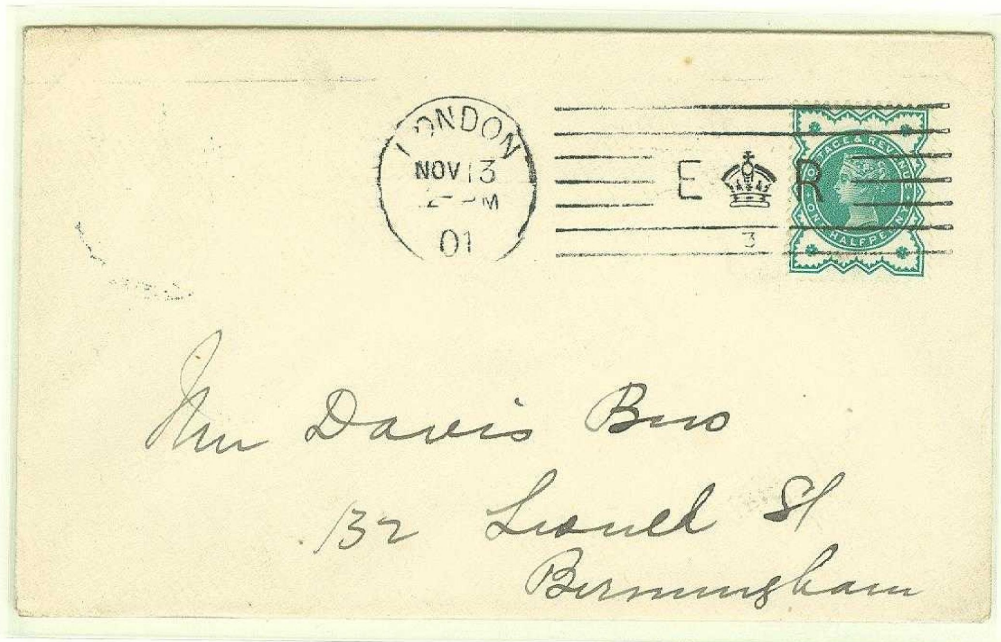 LONDON
NOV 13
01
E R
3
POSTAGE & REVENUE
ONE HALFPENNY
Davis Bros
132 Lionel St
Birmingham